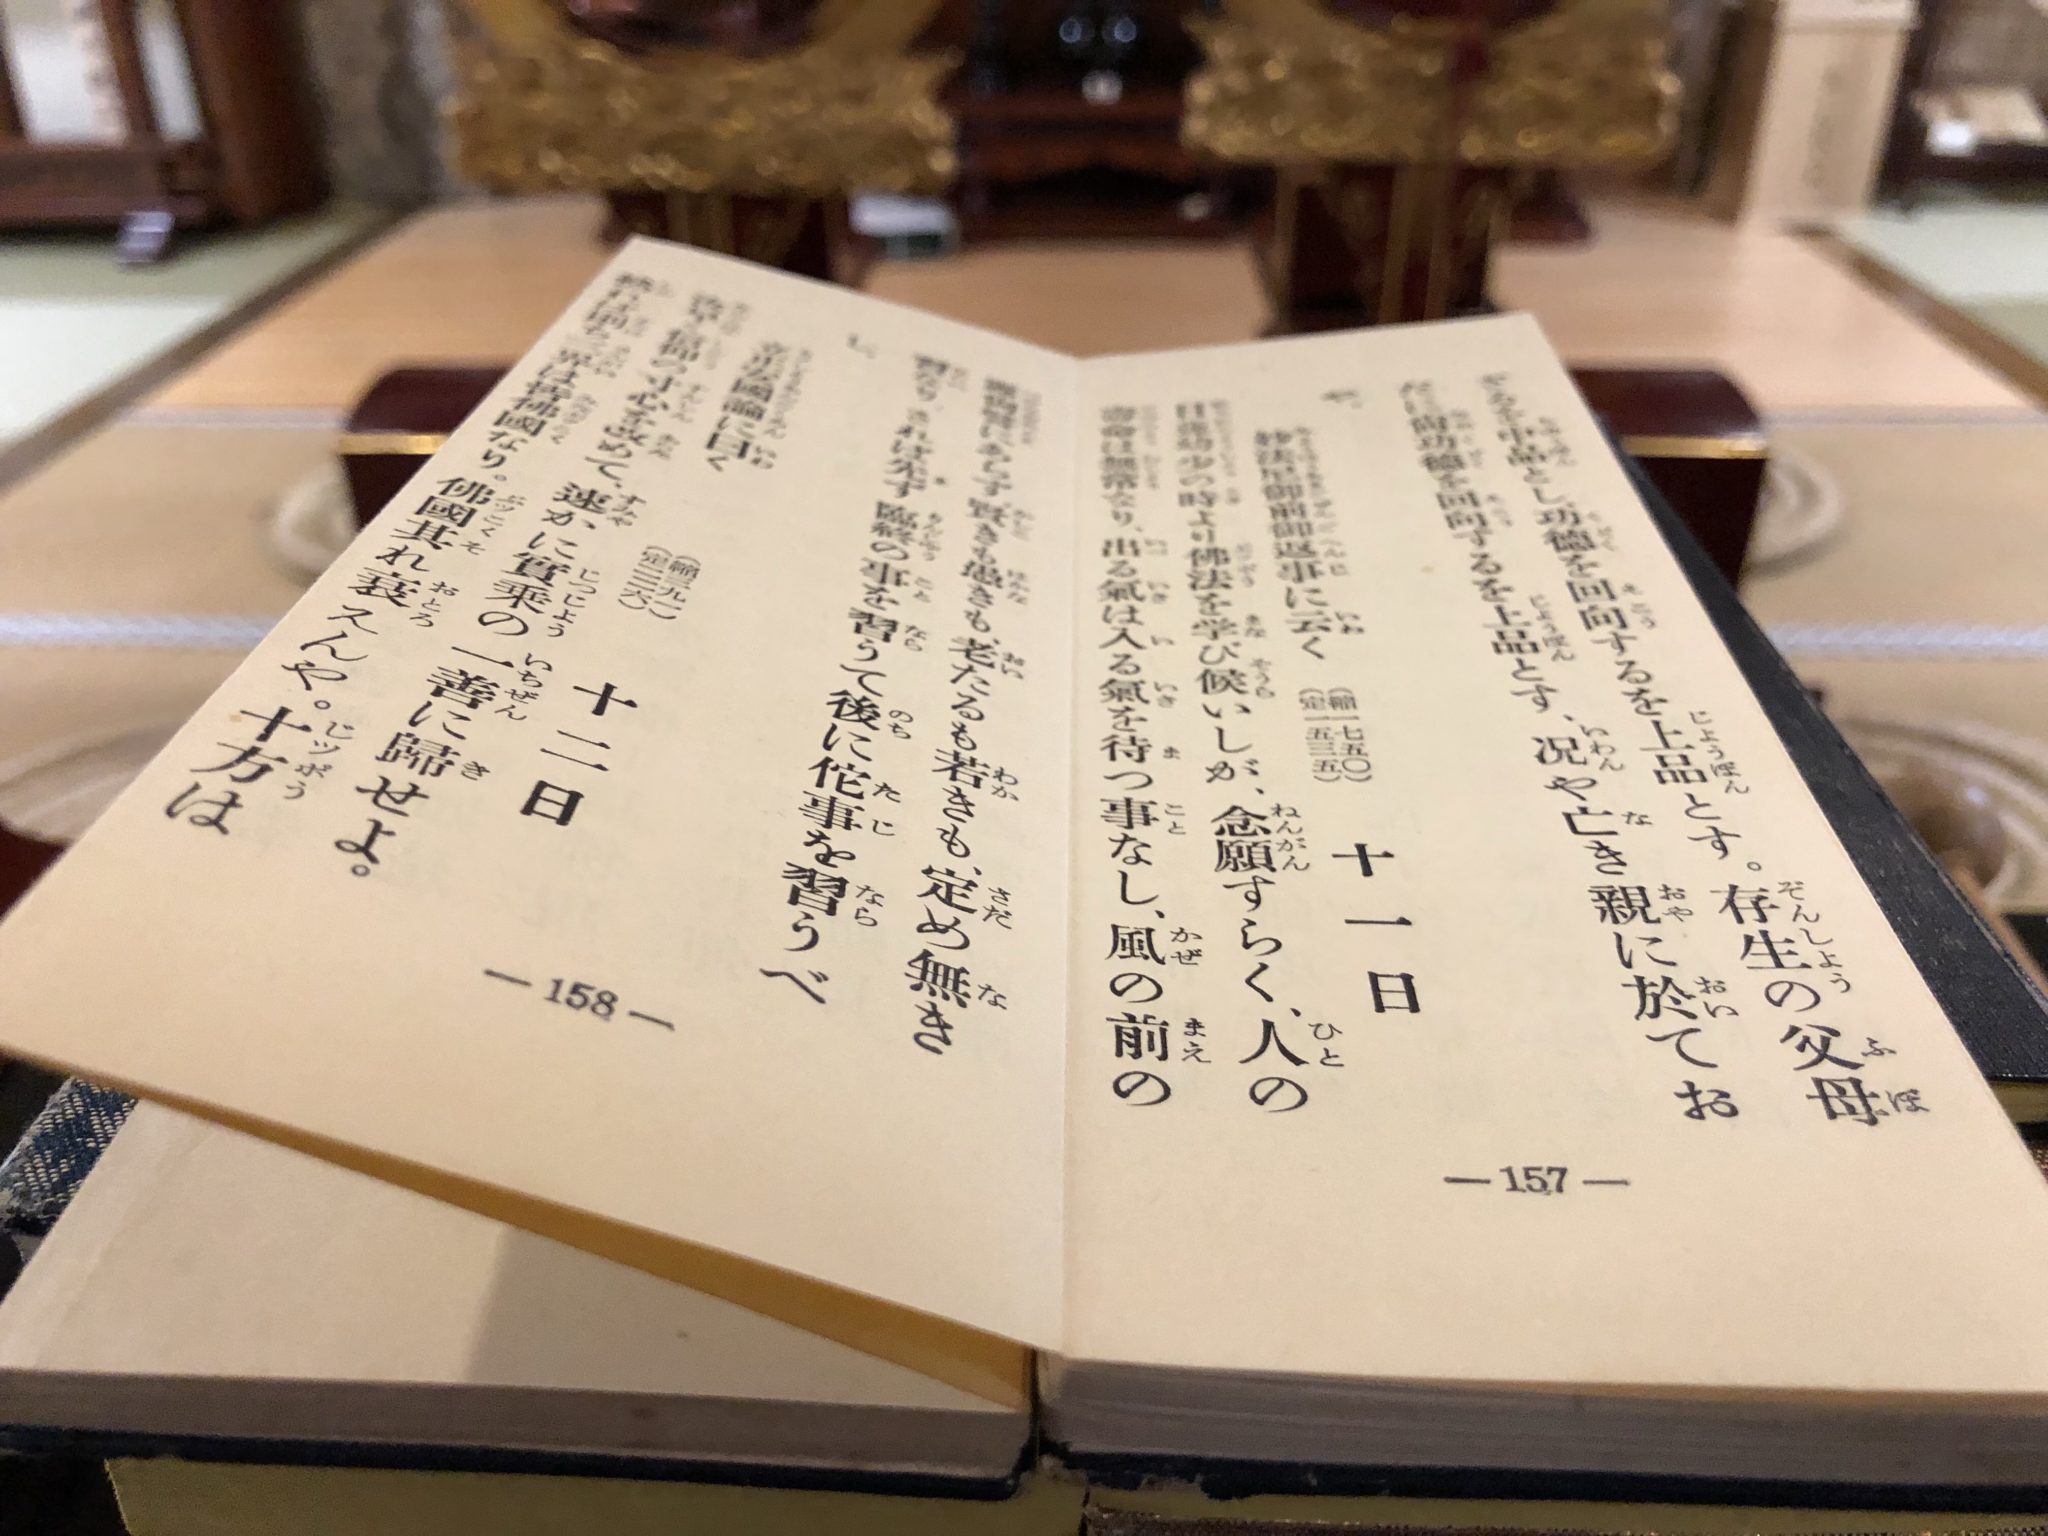 するを中品とし功德を回向するを上品とす。存生の父母
だに尚功德を回向するを上品とす、况や亡き親に於てお
や、
十一日
妙法尼御前御返事に云く
(縮一七五〇)
(定一五三五)
日蓮幼少の時より佛法を学び候いしが、念願すらく、人の
壽命は無常なり、出る氣は入る氣を待つ事なし、風の前の
—157—
賢きも愚きも、老たるも若きも、定め無き
習なり、されば先ず臨終の事を習うて後に佗事を習うべ
し、
十二日
立正安國論に曰く
(縮三九一)
(定二二六)
汝早く信仰の寸心を改めて、速かに實乘の一善に歸せよ。
然れば則ち三界は皆佛國なり。佛國其れ衰えんや。十方は
—158—